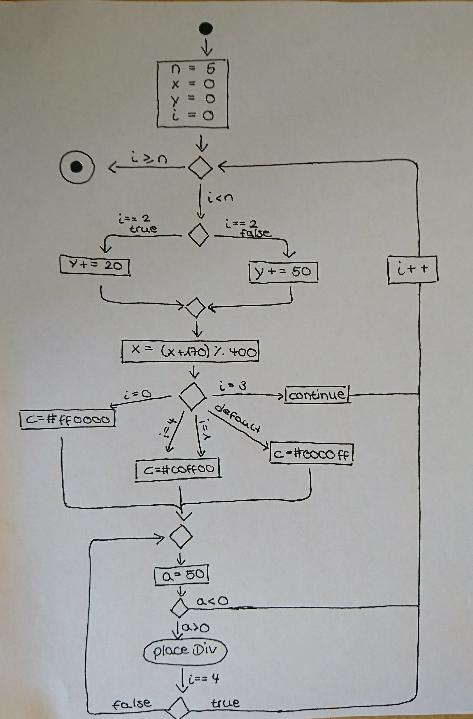 n = 5
x = 0
y = 0
i = 0
i ≥ n
i < n
i == 2
true
i == 2
false
y += 20
y += 50
x = (x+170) % 400
i = 0
i = 3
continue
i++
default
c=#ff0000
c=#00ff00
c=#0000ff
a = 50
a<0
a>0
place Div
i == 4
false
true